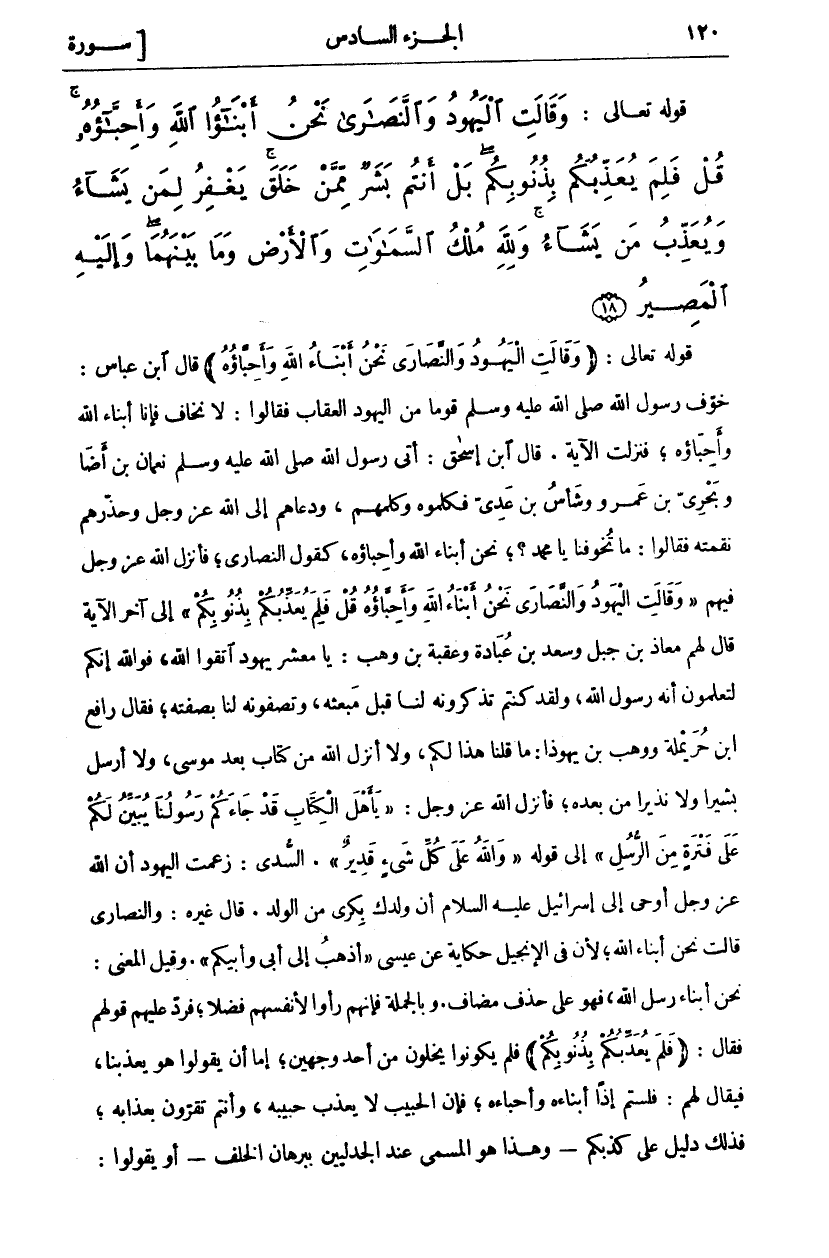 ١٢٠ الجزء السادس [ سورة
قوله تعالى : وَقَالَتِ ٱلْيَهُودُ وَٱلنَّصَارَىٰ نَحْنُ أَبْنَـٰٓؤُا۟ ٱللَّهِ وَأَحِبَّـٰٓؤُهُۥۚ
قُلْ فَلِمَ يُعَذِّبُكُم بِذُنُوبِكُمۖ بَلْ أَنتُم بَشَرٌ مِّمَّنْ خَلَقَۚ يَغْفِرُ لِمَن يَشَآءُ
وَيُعَذِّبُ مَن يَشَآءُۚ وَلِلَّهِ مُلْكُ ٱلسَّمَـٰوَٰتِ وَٱلْأَرْضِ وَمَا بَيْنَهُمَاۖ وَإِلَيْهِ
ٱلْمَصِيرُ ١٨
قوله تعالى : ﴿ وَقَالَتِ الْيَهُودُ وَالنَّصَارَى نَحْنُ أَبْنَاءُ اللهِ وَأَحِبَّاؤُهُ ﴾ قال ٱبن عباس :
خوّف رسول الله صلى الله عليه وسلم قوما من اليهود العقاب فقالوا : لا نخاف فإنا أبناء الله
وأَحِبّاؤه ؛ فنزلت الآية . قال ٱبن إسحٰق : أتى رسول الله صلى الله عليه وسلم نعمان بن أَضَا
و بَحْرِىّ بن عَمـرو وشَأسُ بن عَدِىّ فكلموه وكلمهم ، ودعاهم إلى الله عز وجل وحذّرهم
نقمته فقالوا : ما تُخوفنا يا محمد ؟ ؛ نحن أبناء الله وأحباؤه، كقول النصارى ؛ فأنزل الله عز وجل
فيهم « وَقَالَتِ الْيَهُودُ وَالنَّصَارَى نَحْنُ أَبْنَاءُ اللهِ وَأَحِبَّاؤُهُ قُلْ فَلِمَ يُعَذِّبُكُمْ بِذُنُوبِكُمْ » إلى آخر الآية
قال لهم معاذ بن جبل وسعد بن عُبَادة وعقبة بن وهب : يا معشر يهود ٱتقوا الله، فوالله إنكم
لتعلمون أنه رسول الله، ولقد كنتم تذكرونه لنا قبل مَبعثه، وتصفونه لنا بصفته؛ فقال رافع
ابن حُرَيْملة ووهب بن يهوذا : ما قلنا هذا لكم، ولا أنزل الله من كتاب بعد موسى، ولا أرسل
بشيرا ولا نذيرا من بعده؛ فأنزل الله عز وجل : « يَأَهْلَ الْكِتَابِ قَدْ جَاءَكُمْ رَسُولُنَا يُبَيِّنُ لَكُمْ
عَلَى فَتْرَةٍ مِنَ الرُّسُلِ » إلى قوله « وَاللهُ عَلَى كُلِّ شَىءٍ قَدِيرٌ » . السُّدى : زعمت اليهود أن الله
عز وجل أوحى إلى إسرائيل عليه السلام أن ولدك بِكرى من الولد . قال غيره : والنصارى
قالت نحن أبناء الله؛ لأن فى الإنجيل حكاية عن عيسى «أذهبُ إلى أبى وأبيكم» . وقيل المعنى :
نحن أبناء رسل الله، فهو على حذف مضاف. وبالجملة فإنهم رأوا لأنفسهم فضلا؛ فردّ عليهم قولهم
فقال : ﴿ فَلِمَ يُعَذِّبُكُمْ بِذُنُوبِكُمْ ﴾ فلم يكونوا يخلون من أحد وجهين؛ إما أن يقولوا هو يعذبنا،
فيقال لهم : فلستم إذًا أبناءه وأحباءه ؛ فإن الحبيب لا يعذب حبيبه ، وأنتم تقرّون بعذابه ؛
فذلك دليل على كذبكم — وهذا هو المسمى عند الجدليين ببرهان الخلف — أو يقولوا :